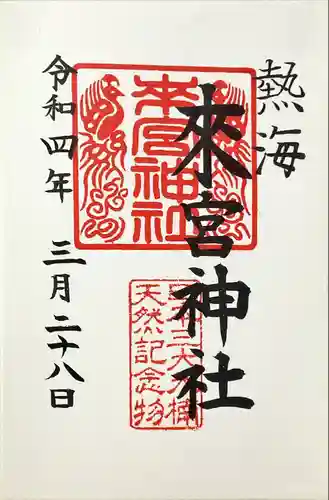 熱海
來宮神社
來宮神社
日本三大楠
天然記念物
令和四年 三月二十八日